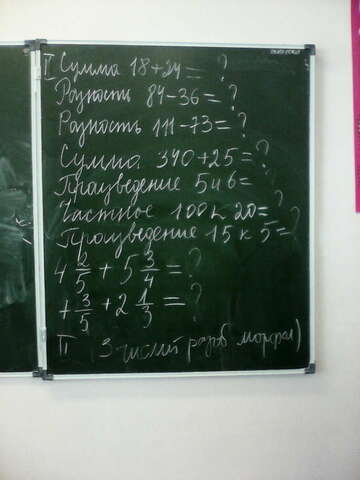 I Сумма 18+24= ?
Разность 84-36= ?
Разность 111-73= ?
Сумма 340+25= ?
Произведение 5и6= ?
Частное 100к 20= ?
Произведение 15 к 5= ?
4 2/5 + 5 3/4 = ?
7 3/5 + 2 1/3 = ?
II 3 числит разб морфем)